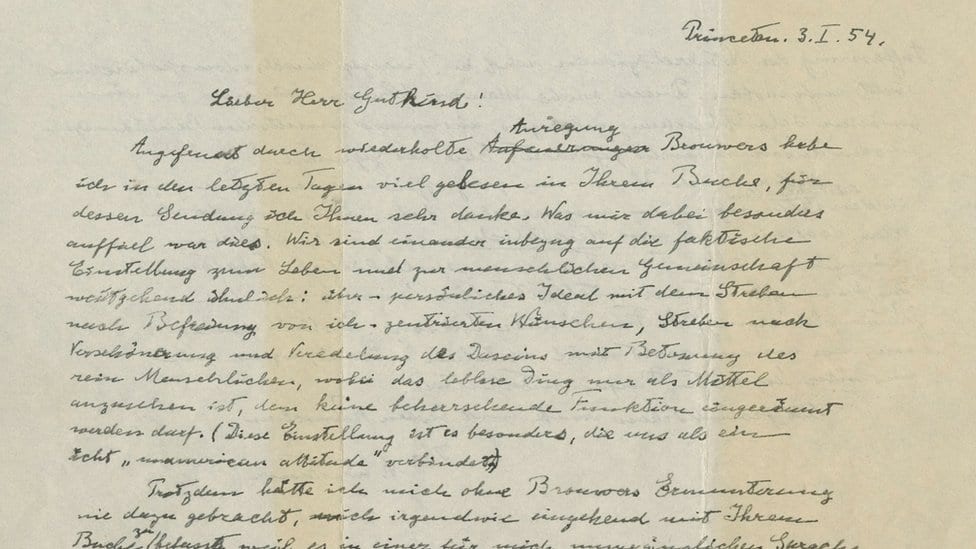 Princeton. 3. I. 54.
Lieber Herr Gutkind!
Anregung
Angefeuert durch wiederholte Anfeuerungen Brouwers habe
ich in den letzten Tagen viel gelesen in Ihrem Buche, für
dessen Sendung ich Ihnen sehr danke. Was mir dabei besonders
auffiel war dies. Wir sind einander inbezug auf die faktische
Einstellung zum Leben und zur menschlichen Gemeinschaft
weitgehend ähnlich: über-persönliches Ideal mit dem Streben
nach Befreiung von ich-zentrierten Wünschen, Streben nach
Verschönerung und Veredelung des Daseins mit Betonung des
rein Menschlichen, wobei das leblose Ding nur als Mittel
anzusehen ist, dem keine beherrschende Funktion eingeräumt
werden darf. (Diese Einstellung ist es besonders, die uns als ein
echt „unamerican attitude" verbindet.)
Trotzdem hätte ich mich ohne Brouwers Ermunterung
nie dazu gebracht, mich irgendwie eingehend mit Ihrem
Buche zu befassen, weil es in einer für mich unzugänglichen Sprache